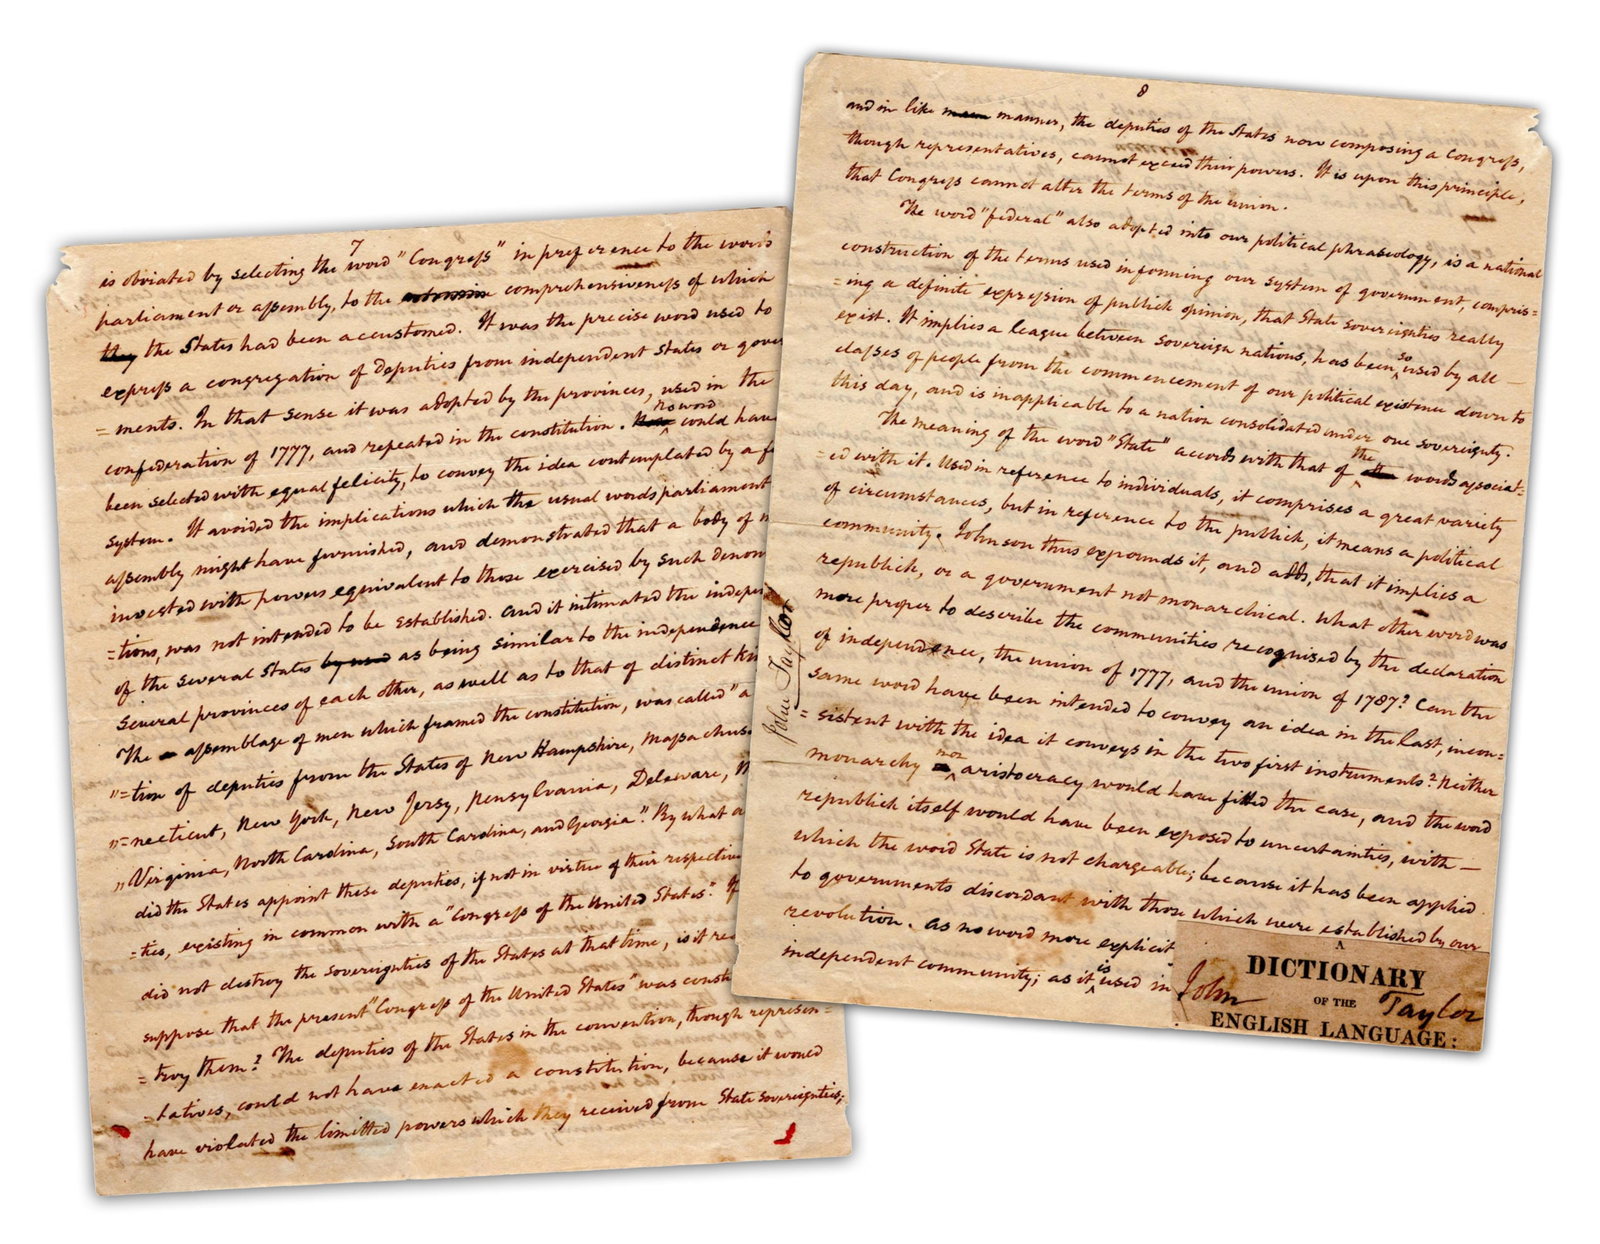 7
is obviated by selecting the word "Congress" in preference to the words
parliament or assembly, to the comprehensiveness of which
they the States had been accustomed. It was the precise word used to
express a congregation of deputies from independent States or gover
=ments. In that sense it was adopted by the provinces, used in the
confederation of 1777, and repeated in the constitution. no word could have
been selected with equal felicity, to convey the idea contemplated by a fe
system. It avoided the implications which the usual words parliament
assembly might have furnished, and demonstrated that a body of m
invested with powers equivalent to those exercised by such denom
=tions, was not intended to be established. and it intimated the indepen
of the several States by used as being similar to the independence
several provinces of each other, as well as to that of distinct kin
The assemblage of men which framed the constitution, was called "a
"=tion of deputies from the States of New Hampshire, Massachus
"=necticut, New York, New Jersy, Pensylvania, Delaware, M
"Virginia, North Carolina, South Carolina, and Georgia". By what a
did the States appoint these deputies, if not in virtue of their respective
=ties, existing in common with a "Congress of the United States." If
did not destroy the sovereignties of the States at that time, is it rea
suppose that the present "Congress of the United States" was consti
=troy them? The deputies of the States in the convention, though represen=
=tatives, could not have enacted a constitution, because it would
have violated the limitted powers which they received from State sovereignties;
8
and in like manner, the deputies of the States now composing a Congress,
though representatives, cannot exceed their powers. It is upon this principle,
that Congress cannot alter the terms of the union.
The word "federal" also adopted into our political phraseology, is a national
construction of the terms used in forming our system of government, compris=
=ing a definite expression of publick opinion, that State sovereignties really
exist. It implies a league between sovereign nations, has been so used by all
classes of people from the commencement of our political existence down to
this day, and is inapplicable to a nation consolidated under one sovereignty.
The meaning of the word "State" accords with that of the words associat=
=ed with it. Used in reference to individuals, it comprises a great variety
of circumstances, but in reference to the publick, it means a political
community. Johnson thus expounds it, and adds, that it implies a
republick, or a government not monarchical. What other word was
more proper to describe the communities recognised by the declaration
of independence, the union of 1777, and the union of 1787? Can the
same word have been intended to convey an idea in the last, incon=
=sistent with the idea it conveys in the two first instruments? Neither
monarchy nor aristocracy would have fitted the case, and the word
republick itself would have been exposed to uncertainties, with
which the word State is not chargeable; because it has been applied
to governments discordant with those which were established by our
revolution. As no word more explicit
independent community; as it is used in
John Taylor
A
DICTIONARY
OF THE
ENGLISH LANGUAGE:
John Taylor